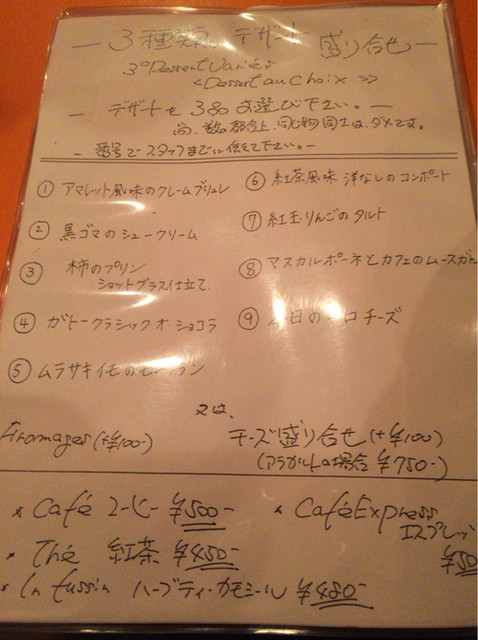 — 3種類のデザート 盛り合せ —
3° Dessert Variés
<Dessert au Choix >>
— デザートを 3品お選び下さい。—
尚、数の都合上、同じ物同士は、ダメです。
- 番号でスタッフまでに伝えて下さい。-
① アマレット風味のクレームブリュレ
② 黒ゴマのシュークリーム
③ 柿のプリン
ショットグラス仕立て.
④ ガトークラシック・オ・ショコラ
⑤ ムラサキイモのモンブラン
⑥ 紅茶風味 洋なしのコンポート
⑦ 紅玉りんごのタルト
⑧ マスカルポーネとカフェのムースガト
⑨ 日の チーズ
又は、
Fromages (+¥100-) チーズ盛り合せ (+¥100)
(アラカルトの場合 ¥750-)
* Café コーヒー ¥500-
* Café Express
エスプレッ
¥50
* Thé 紅茶 ¥450-
* Infussin ハーブティ・カモミール ¥480-